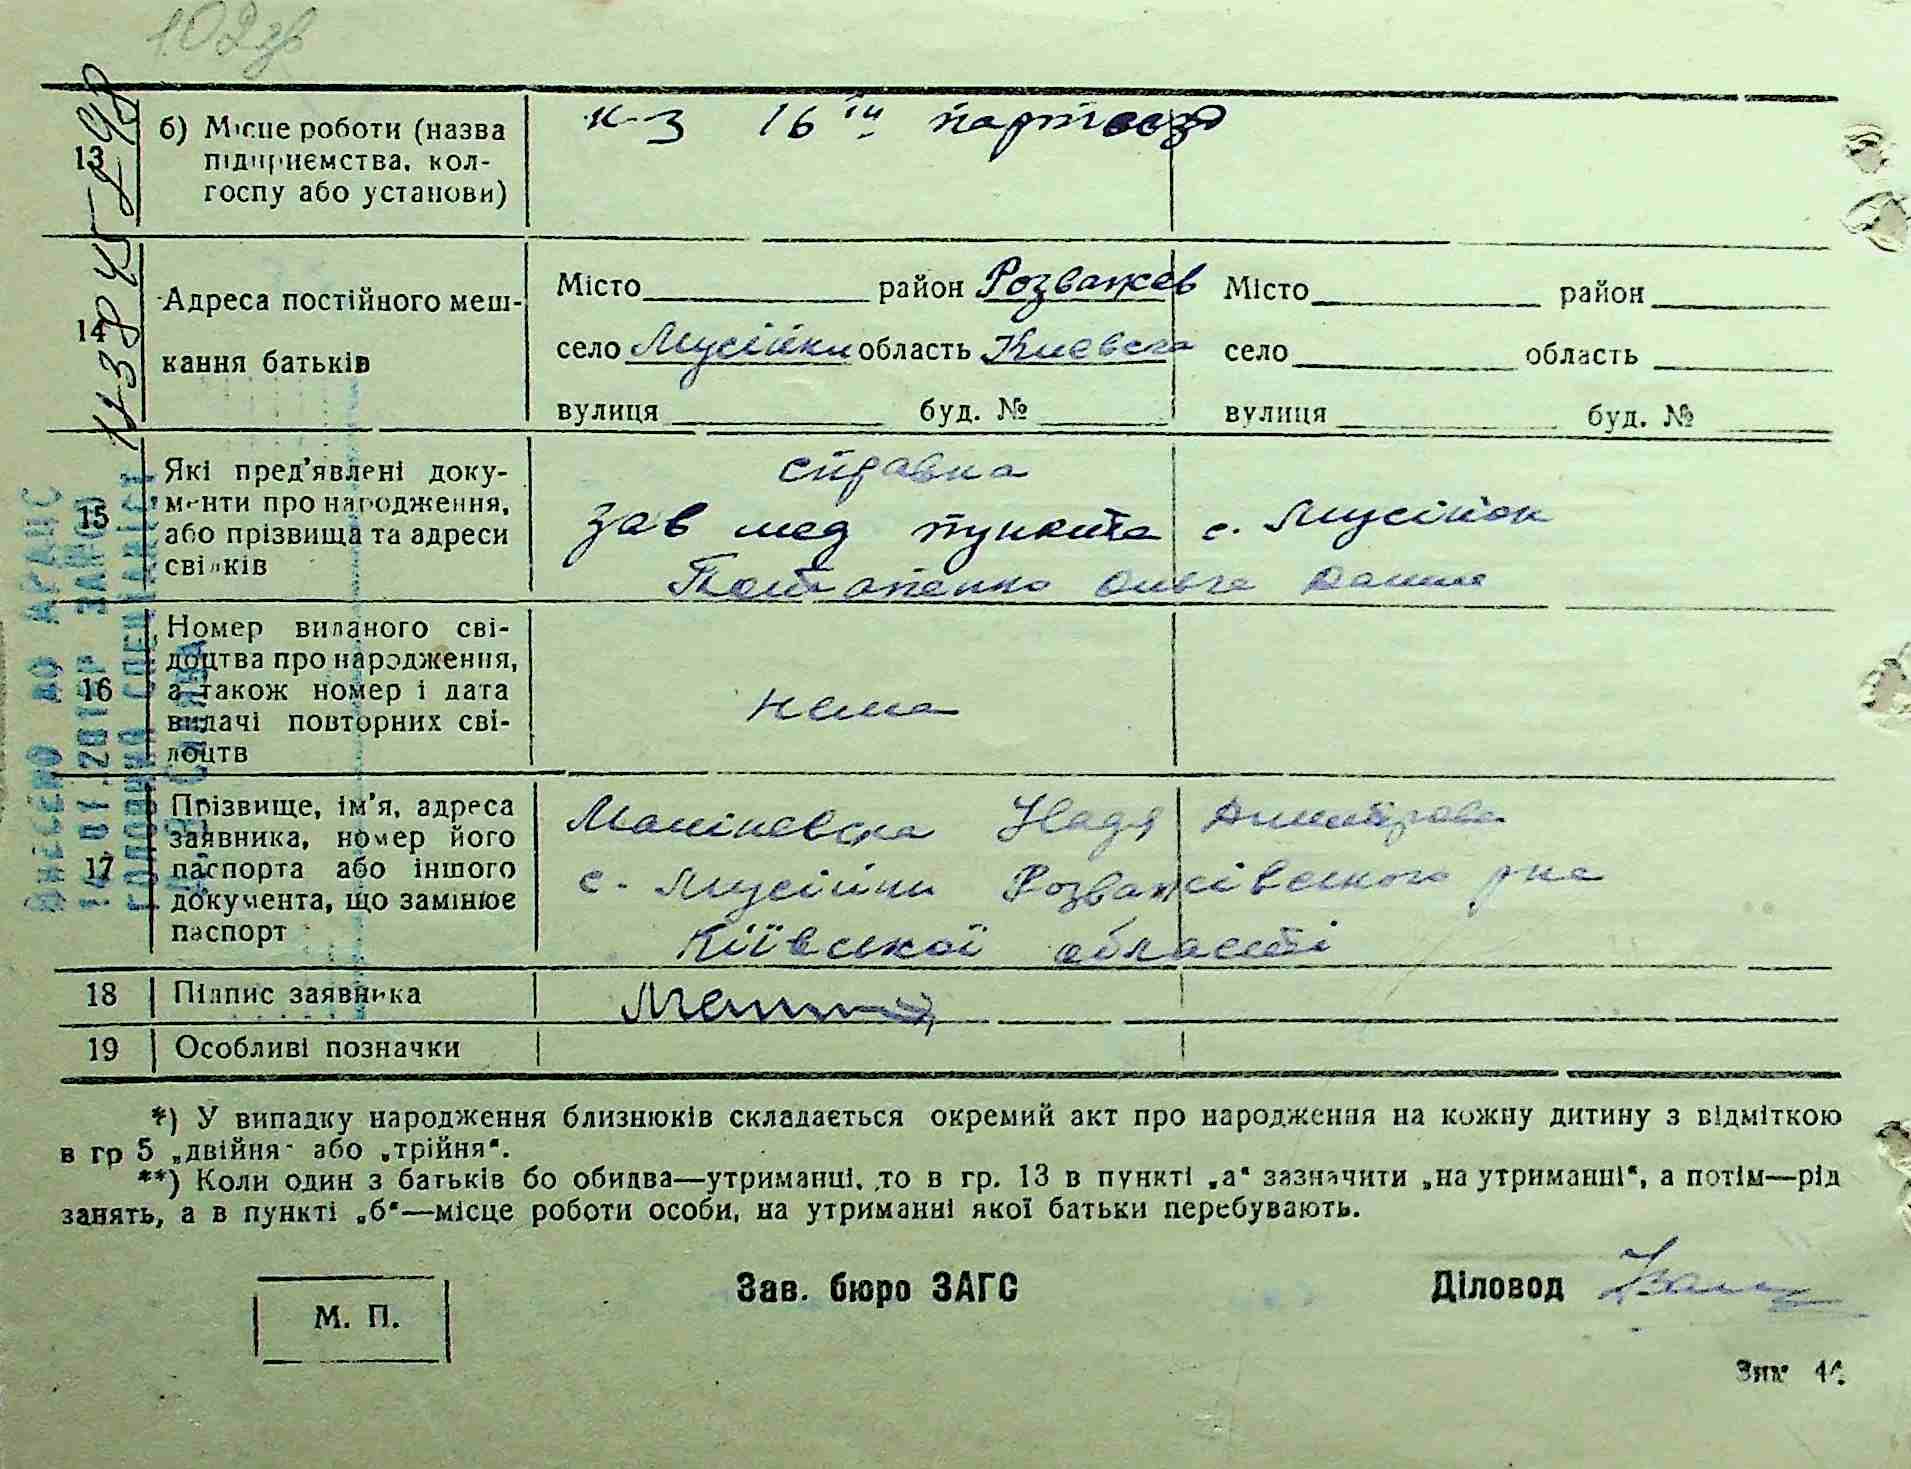 102зв
13 б) Місце роботи (назва підприємства, колгоспу або установи) к-з 16 ти партсезд
14 Адреса постійного мешкання батьків
Місто район Розважев Місто район
село Мусійки область Киевска село область
вулиця буд. № вулиця буд. №
15 Які пред'явлені документи про народження, або прізвища та адреси свідків
справка
зав мед пункта с. Мусійок
Потапенко Ольга
16 Номер виданого свідоцтва про народження, а також номер і дата видачі повторних свідоцтв
нема
17 Прізвище, ім'я, адреса заявника, номер його паспорта або іншого документа, що замінює паспорт
Маліневска Надя
с. Мусійки Розважівского рна
Київскої області
18 Підпис заявника
19 Особливі позначки
*) У випадку народження близнюків складається окремий акт про народження на кожну дитину з відміткою
в гр 5 „двійня" або „трійня".
**) Коли один з батьків бо обидва—утриманці, то в гр. 13 в пункті „а" зазначити „на утриманні", а потім—рід
занять, а в пункті „б"—місце роботи особи, на утриманні якої батьки перебувають.
М. П.
Зав. бюро ЗАГС
Діловод
ВНЕСЕНО ДО АРАЦС
ГОЛОВНИЙ СПЕЦІАЛІСТ